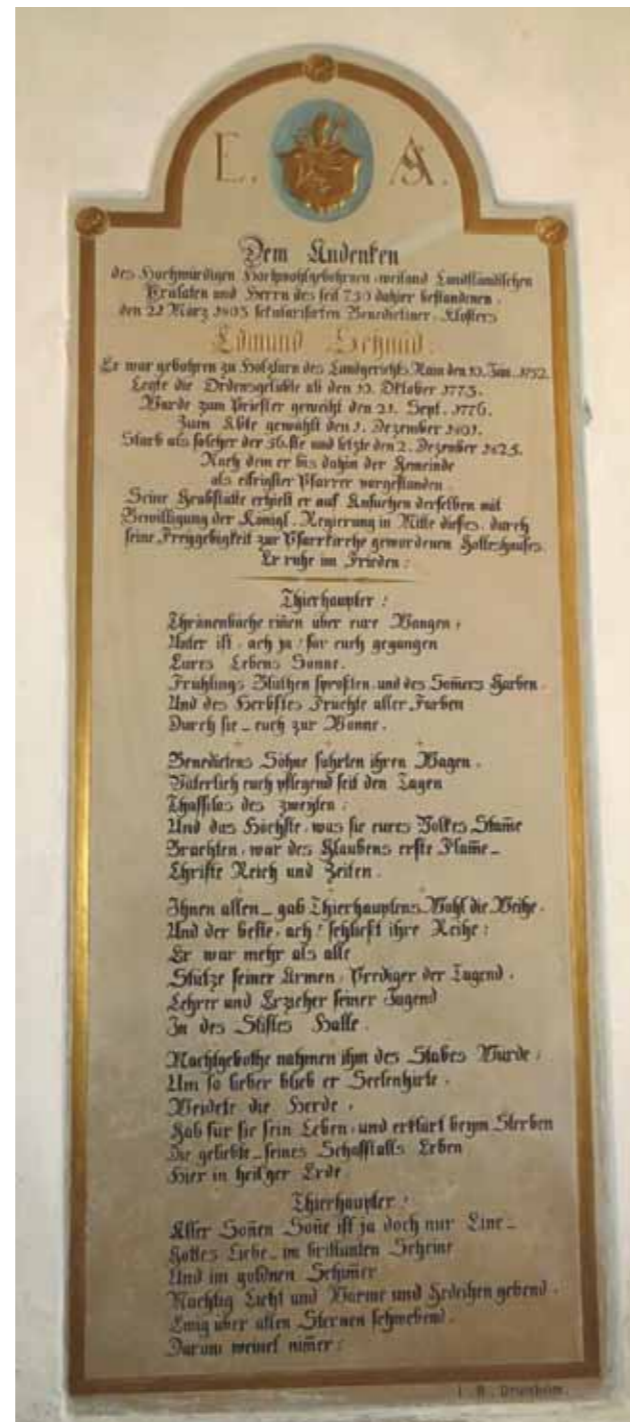 E. A.
Dem Andenken
des Hochwürdigen Hochwohlgebohrnen, weiland Landständischen
Prälaten und Herrn des seit 750 dahier bestandenen,
den 22 März 1803 sekularisirten Benedictiner-Klosters
Edmund Schmid.
Er war gebohren zu Holzlarn des Landgerichts Rain den 10. Jan. 1752.
Legte die Ordensgelübte ab den 10. Oktober 1773.
Wurde zum Priester geweiht den 21. Sept. 1776.
Zum Abte gewählt den 1. Dezember 1801.
Starb als solcher der 56.ste und letzte den 2. Dezember 1825.
Nach dem er bis dahin der Gemeinde
als eifrigster Pfarrer vorgestanden.
Seine Grabstätte erhielt er auf Ansuchen derselben mit
Bewilligung der Königl. Regierung in Mitte dieses, durch
seine Freygebigkeit zur Pfarrkirche gewordenen Gotteshauses.
Er ruhe im Frieden!
Thierhaupter!
Thränenbäche rin̄en über eure Wangen,
Unter ist, ach ja! für euch gegangen
Eures Lebens Sonne.
Frühlings Blüthen sproßten, und des Som̄ers Garben,
Und des Herbstes Früchte aller Farben
Durch sie – euch zur Wonne.
Benedictens Söhne führten ihren Wagen,
Väterlich euch pflegend seit den Tagen
Thassilos des zweyten;
Und das Höchste, was sie eures Volkes Stam̄e
Brachten, war des Glaubens erste Flam̄e –
Christe Reich und Zeiten.
Ihnen allen – gab Thierhauptens Wohl die Weihe,
Und der beste, ach! schließt ihre Reihe:
Er war mehr als alle
Stütze seiner Armen, Prediger der Tugend,
Lehrer und Erzieher seiner Jugend
In des Stiftes Halle.
Machtgebothe nahmen ihm des Stabes Würde;
Um so lieber blieb er Seelenhirte,
Weidete die Herde,
Gab für sie sein Leben, und erklärt beym Sterben
Die geliebte – seines Schafstalls Erben
Hier in heil'ger Erde.
Thierhaupter!
Aller Son̄en Son̄e ist ja doch nur Eine –
Gottes Liebe – im brillanten Scheine
Und im goldnen Schim̄er
Mächtig Licht und Wärme und Gedeihen gebend,
Ewig über allen Sternen schwebend.
Darum weinet nim̄er!